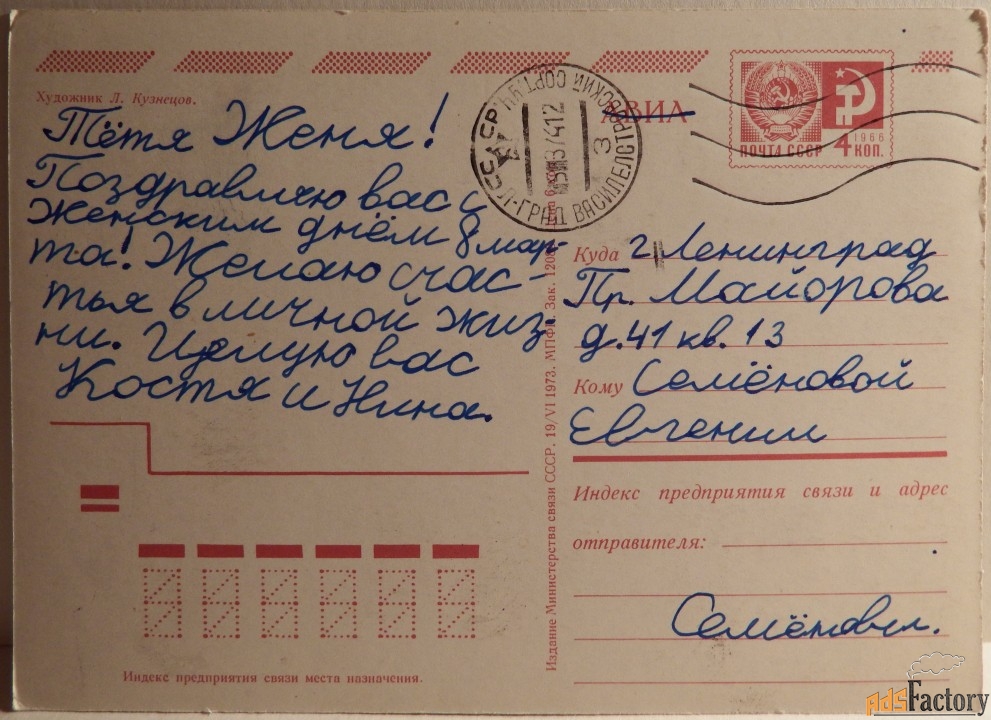 Художник Л. Кузнецов.
Тётя Женя!
Поздравляю вас с
Женским днём 8 мар-
та! Желаю счас-
тья в личной жиз-
ни. Целую вас
Костя и Нина.
АВИА
ПОЧТА СССР
1966
4 КОП.
Л-ГРАД ВАСИЛЕОСТРОВСКИЙ СОРТ. УЧ.
СССР
3
Куда г Ленинград
Пр. Майорова
д. 41 кв. 13
Кому Семёновой
Евгении
Индекс предприятия связи и адрес
отправителя:
Семёновы.
Издание Министерства связи СССР. 19/VI 1973. МПФГ. Зак.
Индекс предприятия связи места назначения.
AdsFactory